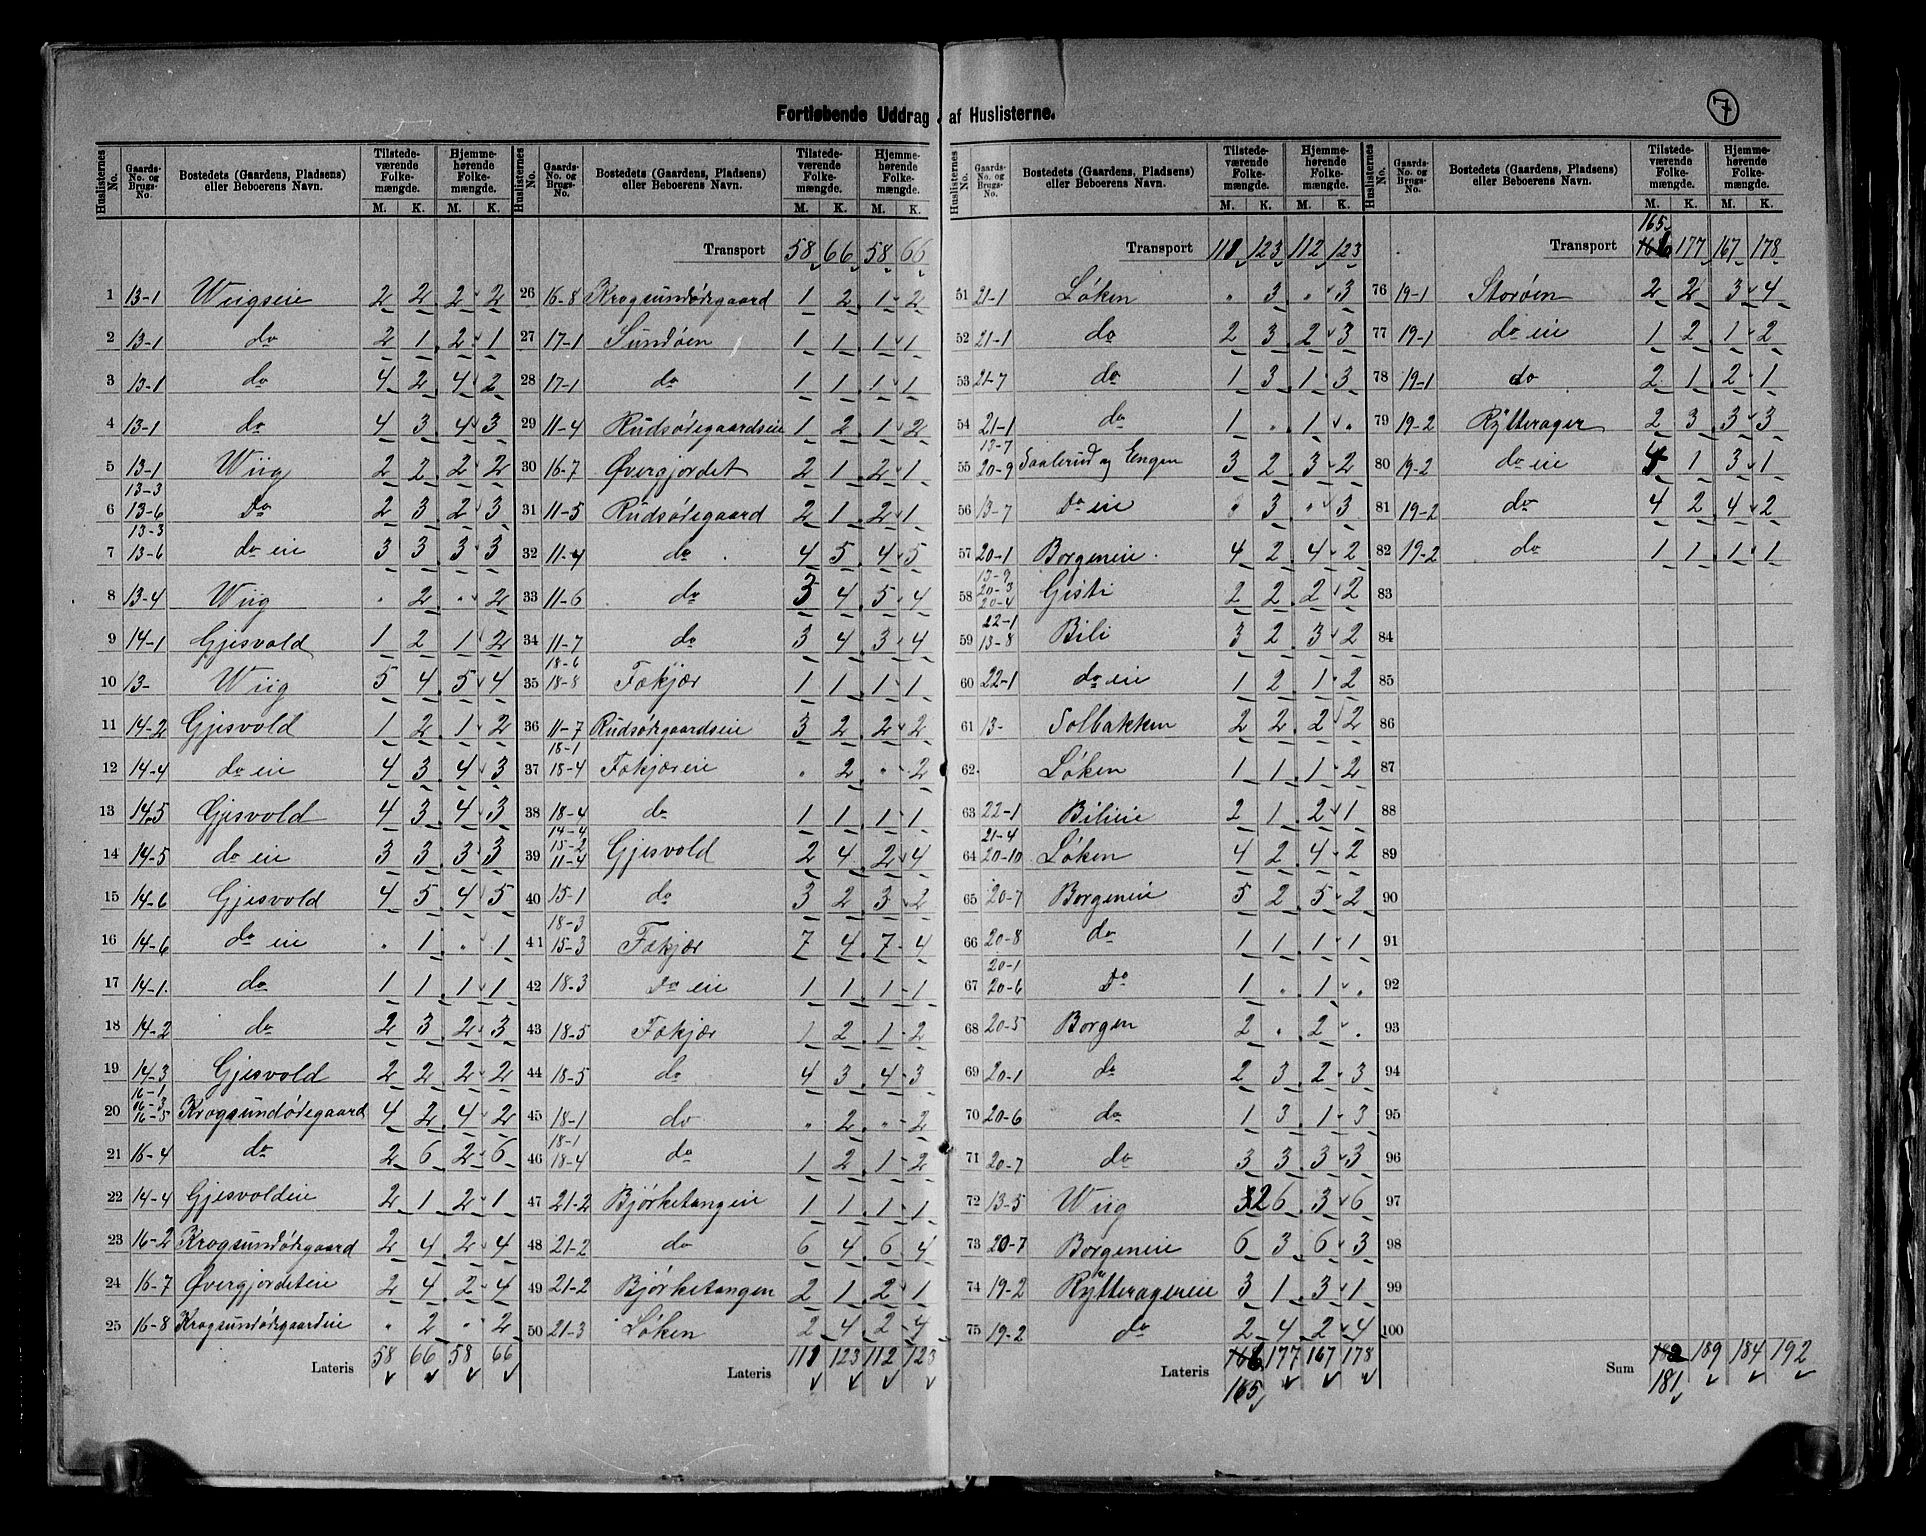 Fortløbende Uddrag af Huslisterne.
7
Huslisternes No. | Gaards-No. og Brugs-No. | Bostedets (Gaardens, Pladsens) eller Beboerens Navn. | Tilstedeværende Folkemængde. M. K. | Hjemmehørende Folkemængde. M. K.
1 13-1 Wiigseie 2 2 2 2
2 13-1 do 2 1 2 1
3 13-1 do 4 2 4 2
4 13-1 do 4 3 4 3
5 13-1 Wiig 2 2 2 2
6 13-3 13-6 Do 2 3 2 3
7 13-3 13-6 do eie 3 3 3 3
8 13-4 Wiig " 2 " 2
9 14-1 Gjesvold 1 2 1 2
10 13- Wiig 5 4 5 4
11 14-2 Gjesvold 1 2 1 2
12 14-4 do eie 4 3 4 3
13 14-5 Gjesvold 4 3 4 3
14 14-5 do eie 3 3 3 3
15 14-6 Gjesvold 4 5 4 5
16 14-6 do eie " 1 " 1
17 14-1. do 1 1 1 1
18 14-2 do 2 3 2 3
19 14-3 Gjesvold 2 2 2 2
20 16-1 16-3 16-5 Krogsundødegaard 4 2 4 2
21 16-4 do 2 6 2 6
22 14-4 Gjesvoldeie 2 1 2 1
23 16-2 Krogsundødegaard 2 4 2 4
24 16-7 Øvergjordeteie 2 4 2 4
25 16-8 Krogsundødegaardeie " 2 " 2
Lateris 58 66 58 66
Huslisternes No. | Gaards-No. og Brugs-No. | Bostedets (Gaardens, Pladsens) eller Beboerens Navn. | Tilstedeværende Folkemængde. M. K. | Hjemmehørende Folkemængde. M. K.
Transport 58 66 58 66
26 16-8 Krogsundødegaard 1 2 1 2
27 17-1 Sundøen 1 1 1 1
28 17-1 do 1 1 1 1
29 11-4 Rudsødegaardseie 1 2 1 2
30 16-7 Øvergjordet 2 1 2 1
31 11-5 Rudsødegaard 2 1 2 1
32 11-4 do 4 5 4 5
33 11-6 do 3 4 5 4
34 11-7 do 3 4 3 4
35 18-6 18-8 Fokjær 1 1 1 1
36 11-7 Rudsødegaardseie 3 2 2 2
37 18-1 18-4 Fokjæreie " 2 " 2
38 18-4 do 1 1 1 1
39 14-4 15-2 11-4 Gjesvold 2 4 2 4
40 15-1 do 3 2 3 2
41 18-3 15-3 Fokjær 7 4 7 4
42 18-3 Do eie 1 1 1 1
43 18-5 Fokjær 1 2 1 2
44 18-5 do 4 3 4 3
45 18-1 do " 2 " 2
46 18-1 18-4 do 1 2 1 2
47 21-2 Bjørketangeie 1 1 1 1
48 21-2 do 6 4 6 4
49 21-2 Bjørketangen 2 1 2 1
50 21-3 Løken 2 4 2 4
Lateris 111 123 112 123
Huslisternes No. | Gaards-No. og Brugs-No. | Bostedets (Gaardens, Pladsens) eller Beboerens Navn. | Tilstedeværende Folkemængde. M. K. | Hjemmehørende Folkemængde. M. K.
Transport 111 123 112 123
51 21-1 Løken " 3 " 3
52 21-1 do 2 3 2 3
53 21-7 do 1 3 1 3
54 21-1 do 1 " 1 "
55 13-7 20-9 Saalerud og Engen 3 2 3 2
56 13-7 Do eie " 3 " 3
57 20-1 Borgeneie 4 2 4 2
58 13-9 20-3 20-4 Gisti 2 2 2 2
59 22-1 13-8 Bili 3 2 3 2
60 22-1 do eie 1 2 1 2
61 13- Solbakken 2 2 2 2
62. Løken 1 1 1 2
63 22-1 Bilieie 2 1 2 1
64 21-4 20-10 Løken 4 2 4 2
65 20-7 Borgeneie 5 2 5 2
66 20-8 do 1 1 1 1
67 20-1 20-6 Do 1 " 1 "
68 20-5 Borgen 2 " 2 "
69 20-1 do 2 3 2 3
70 20-6 do 1 3 1 3
71 20-7 do 3 3 3 3
72 13-5 Wiig 32 6 3 6
73 20-7 Borgeneie 6 3 6 3
74 19-2 Rytteragereie 3 1 3 1
75 19-2 do 2 4 2 4
Lateris 166 177 167 178
165
Huslisternes No. | Gaards-No. og Brugs-No. | Bostedets (Gaardens, Pladsens) eller Beboerens Navn. | Tilstedeværende Folkemængde. M. K. | Hjemmehørende Folkemængde. M. K.
165
Transport 166 177 167 178
76 19-1 Storøen 2 2 3 4
77 19-1 do eie 1 2 1 2
78 19-1 do 2 1 2 1
79 19-2 Rytterager 2 3 3 3
80 19-2 do eie 4 1 3 1
81 19-2 do 4 2 4 2
82 19-2 do 1 1 1 1
83
84
85
86
87
88
89
90
91
92
93
94
95
96
97
98
99
100
Sum 182 189 184 192
181